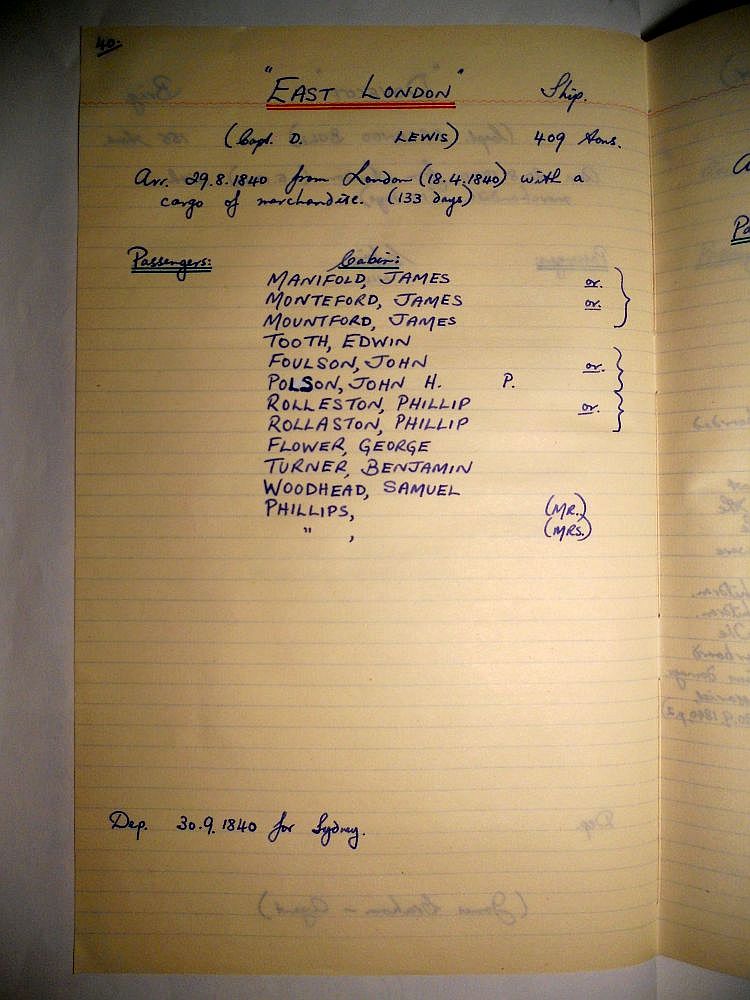 40.
"EAST LONDON" Ship.
(Capt. D. LEWIS) 409 tons.
Arr. 29.8.1840 from London (18.4.1840) with a
cargo of merchandise. (133 days)
Passengers: Cabin:
MANIFOLD, JAMES or.
MONTEFORD, JAMES or.
MOUNTFORD, JAMES
TOOTH, EDWIN
FOULSON, JOHN or.
POLSON, JOHN H. P.
ROLLESTON, PHILLIP or.
ROLLASTON, PHILLIP
FLOWER, GEORGE
TURNER, BENJAMIN
WOODHEAD, SAMUEL
PHILLIPS, (MR.)
" , (MRS.)
Dep. 30.9.1840 for Sydney.